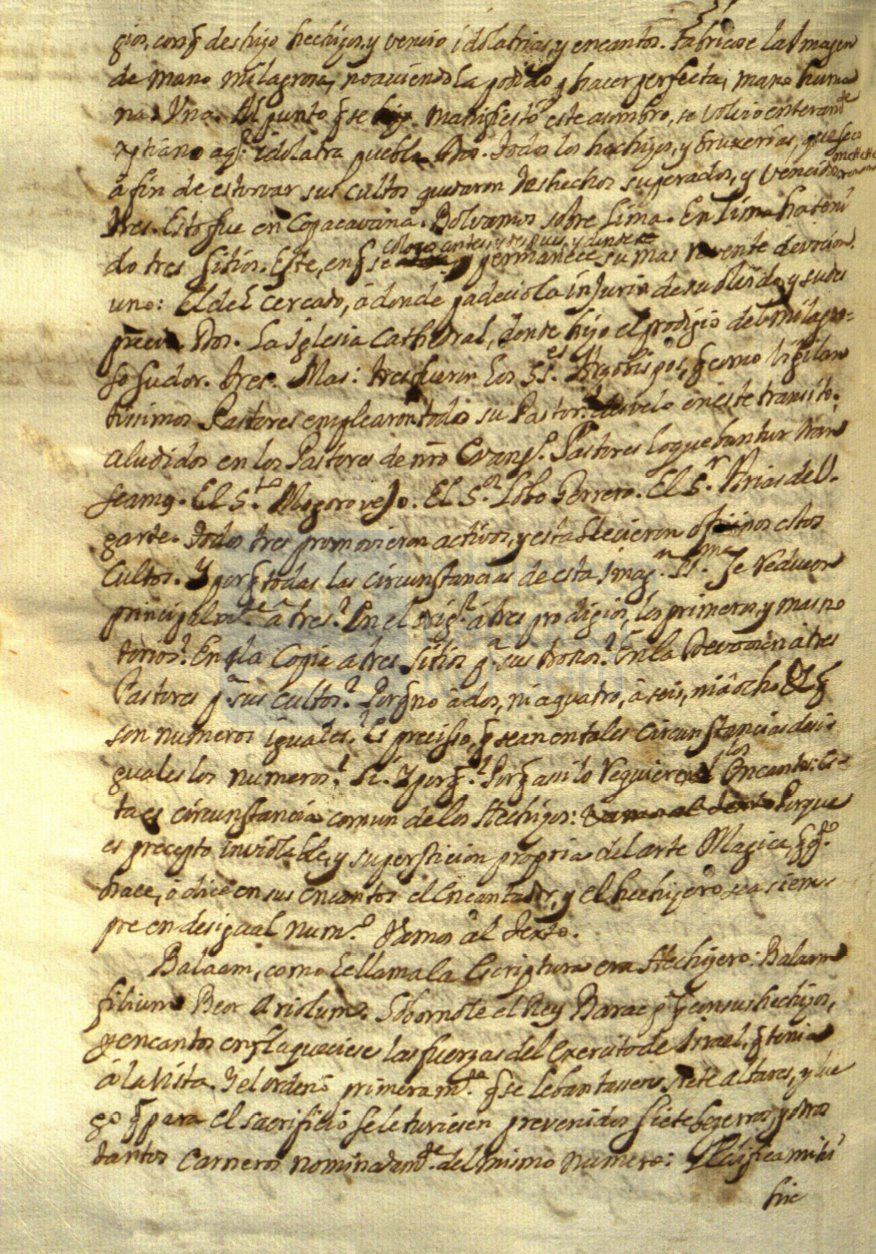 gios, con q̃ deshizo hechizos, y vencio idolatrias, y encantos. Fabricose la Imagen
de mano milagrosa, no aviendola podido hacer perfecta, mano huma
na. Vna. Al punto q̃ se hizo manifesto este asombro, se volvio enteram.te
xp̃tiano aq.l idolatra pueblo. Dos. Todos los hechizos, y bruxerias, que
á fin de estorvar sus cultos quedaron deshechos superados, y vencidos
tres. Esto fue en Copacavana. Bolvamos sobre Lima. En Lima ha teni
do tres sitios. Este, en q̃ se coloco antes, y despues, y permanece su mas reverente devocion.
uno: El del Cercado, á donde padecio la injuria de su olvido, y su des
precio. Dos. La Iglesia Cathedral, donde hizo el prodigio del milagro-
so sudor. tres. Mas: tres fueron los SS.es Arzobispos, q̃ como vigilan
tissimos Pastores emplearon todo su Pastor.l desvelo en este transito.
aludidos en los Pastores de nr̃o Evang.o Pastores loquebantur tran
seamq. El S.to Mogrovejo. El S.or Lobo Gerrero. El S.r Arias de V-
garte. Todos tres promovieron activos, y establecieron oficiosos estos
cultos. Y por q̃ todas las circunstancias de esta Imag.n SS.ma se reducen
principalm.te á tres? En el Orig.l á tres prodigios, los primeros, y mas no
torios? En la Copia a tres sitios p.a sus honor.s? En la Devocion á tres
Pastores p.a sus cultos? Por q̃ no á dos, ni a quatro, á seis, ni á ocho q̃
son numeros iguales? Es precisso, q̃ sean en tales circunstancias desi
guales los numeros? Si. Y por q̃? Por q̃ asi lo requieren los Encantos: Es-
ta es circunstancia comun de los Hechizos: Porque
es precepto inviolable, y supersticion propria del arte Magica, q̃ q.to
hace, o dice en sus encantos el Encantador, y el hechizero sea siem-
pre en desigual num.o Vamos al Texto.
Balaam, como le llama la Escriptura era Hechizero: Balaam
filium Beor Ariolum. Sobornole el Rey Barac p.a q̃ con sus hechizos,
y encantos enflaqueciese las fuerzas del Exercito de Israel, q̃ tenia
á la vista. Y el ordenó primeram.te q̃ se lebantasen siete altares, y lue
go q̃ para el sacrificio se le tuviesen prevenidos siete bezerros, y otros
tantos Carneros nominadam.te del mismo numero: Ædifica mihi
hic